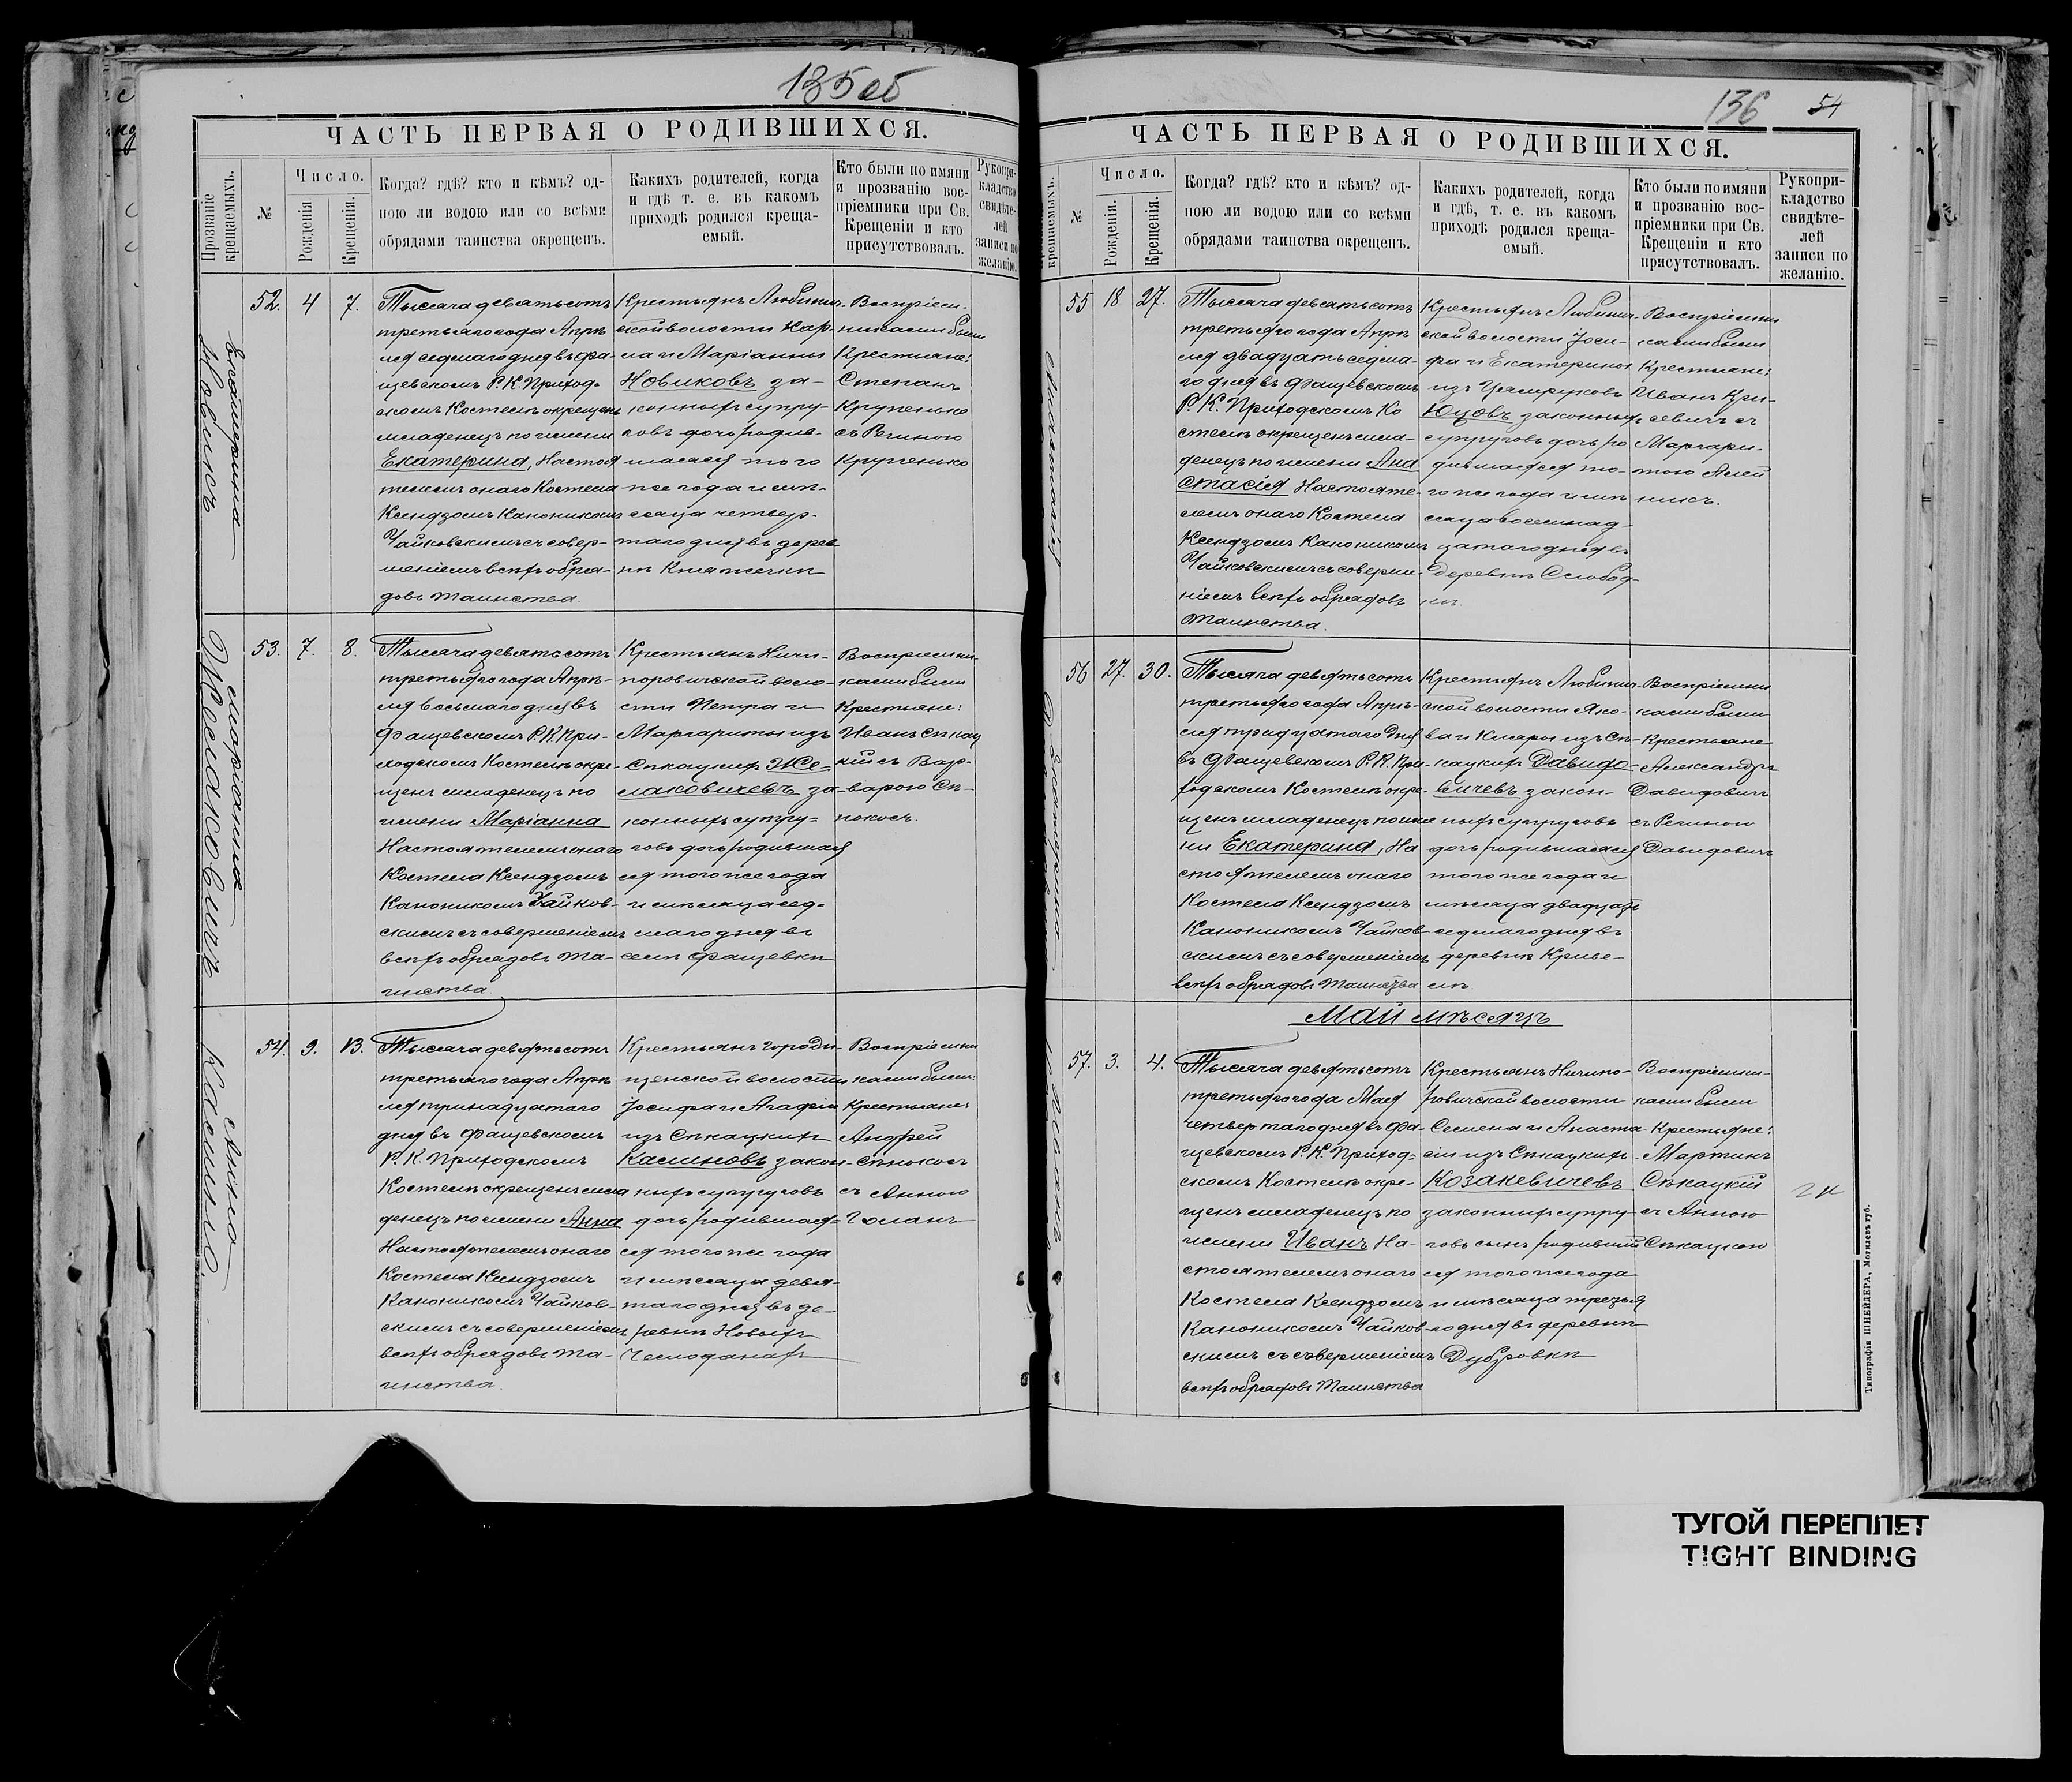 135 об
ЧАСТЬ ПЕРВАЯ О РОДИВШИХСЯ.
Прозваніе крещаемыхъ.
№
Число.
Рожденія
Крещенія.
Когда? гдѣ? кто и кѣмъ? од-
ною ли водою или со всѣми
обрядами таинства окрещенъ.
Какихъ родителей, когда
и гдѣ т. е. въ какомъ
приходѣ родился креща-
емый.
Кто были по имяни
и прозванію вос-
пріемники при Св.
Крещеніи и кто
присутствовалъ.
Рукопри-
кладство
свидѣте-
лей
записи по
желанію.
Екатерина
Новикъ
52. 4 7.
Тысяча девятьсотъ
третьяго года Апрѣ
ля седмаго дня въ Фа-
щевскомъ Р. К. Приход-
скомъ Костелѣ окрещенъ
младенецъ по имени
Екатерина, Настоя
телемъ онаго Костела
Ксендзомъ Каноникомъ
Чайковскимъ съ совер-
шеніемъ всѣхъ обря-
довъ Таинства.
Крестьянъ Любинич-
ской волости Кар-
ла и Маріанны
Новиковъ за-
конныхъ супру-
говъ дочь родив-
шаяся того
же года и мѣ-
сяца четвер-
таго дня въ дерев
нѣ Княжечки
Воспріем-
никами были
Крестьяне:
Степанъ
Крупенько
съ Региною
Крупенько
Маріанна
Желаковичъ
53. 7. 8.
Тысяча девятьсотъ
третьяго года Апрѣ-
ля восьмаго дня въ
Фащевскомъ Р. К. При-
ходскомъ Костелѣ окре-
щенъ младенецъ по
имени Маріанна
Настоятелемъ онаго
Костела Ксендзомъ
Каноникомъ Чайков-
скимъ съ совершеніемъ
всѣхъ обрядовъ Та-
инства.
Крестьянъ Ничи-
поровичской воло-
сти Петра и
Маргариты изъ
Сѣкацкихъ Же-
лаковичевъ за-
конныхъ супру-
говъ дочь родивша
ся того же года
и мѣсяца сед-
маго дня въ
селѣ Фащевкѣ
Воспріемни-
ками были
Крестьяне:
Иванъ Сѣкац
кій съ Вар-
варою Сѣ-
нокосъ.
Анна
Калино.
54. 9. 13.
Тысяча девятьсотъ
третьяго года Апрѣ
ля тринадцатаго
дня въ Фащевскомъ
Р. К. Приходскомъ
Костелѣ окрещенъ мла
денецъ по имени Анна
Настоятелемъ онаго
Костела Ксендзомъ
Каноникомъ Чайков-
скимъ съ совершеніемъ
всѣхъ обрядовъ Та-
инства.
Крестьянъ Городи-
щенской волости
Іосифа и Агафіи
изъ Сѣкацкихъ
Калиновъ закон-
ныхъ супруговъ
дочь родившая-
ся того же года
и мѣсяца девя-
таго дня въ де-
ревнѣ Новыхъ
Чемоданахъ
Воспріемни
ками были:
Крестьяне
Андрей
Сѣнокосъ
съ Анною
Голанъ
136 54
ЧАСТЬ ПЕРВАЯ О РОДИВШИХСЯ.
крещаемыхъ.
№
Число.
Рожденія.
Крещенія.
Когда? гдѣ? кто и кѣмъ? од-
ною ли водою или со всѣми
обрядами таинства окрещенъ.
Какихъ родителей, когда
и гдѣ, т. е. въ какомъ
приходѣ родился креща-
емый.
Кто были по имяни
и прозванію вос-
пріемники при Св.
Крещеніи и кто
присутствовалъ.
Рукопри-
кладство
свидѣте-
лей
записи по
желанію.
Анастасія
55 18 27.
Тысяча девятьсотъ
третьяго года Апрѣ
ля двадцать седма-
го дня въ Фащевскомъ
Р. К. Приходскомъ Ко
стелѣ окрещенъ мла-
денецъ по имени Ана
стасія Настояте-
лемъ онаго Костела
Ксендзомъ Каноникомъ
Чайковскимъ съ соверше-
ніемъ всѣхъ обрядовъ
Таинства.
Крестьянъ Любинич-
ской волости Іоси-
фа и Екатерины
изъ
законныхъ
супруговъ дочь ро
дившаяся то-
го же года и мѣ
сяца восемнад-
цатаго дня въ
деревнѣ Слобод-
кѣ.
Воспріемни
ками были
Крестьяне:
Иванъ Кри-
севичъ съ
Маргари-
тою
56 27. 30.
Тысяча девятьсотъ
третьяго года Апрѣ-
ля тридцатаго Дня
въ Фащевскомъ Р. К. При-
ходскомъ Костелѣ окре-
щенъ младенецъ по име
ни Екатерина, На
стоятелемъ онаго
Костела Ксендзомъ
Каноникомъ Чайков
скимъ съ совершеніемъ
всѣхъ обрядовъ Таинства
Крестьянъ Любинич-
ской волости Яко-
ва и Клары изъ Сѣ-
кацкихъ Давидо-
вичевъ закон-
ныхъ супруговъ
дочь родившаяся
того же года и
мѣсяца двадцать
седмаго дня въ
деревнѣ Криве-
лѣ.
Воспріемни
ками были
Крестьяне
Александръ
Давидовичъ
съ Региною
Давидовичъ
Май мѣсяцъ
57. 3. 4.
Тысяча девятьсотъ
третьяго года Мая
четвертаго дня въ Фа-
щевскомъ Р. К. Приход-
скомъ Костелѣ окре-
щенъ младенецъ по
имени Иванъ На-
стоятелемъ онаго
Костела Ксендзомъ
Каноникомъ Чайков-
скимъ съ совершеніемъ
всѣхъ обрядовъ Таинства
Крестьянъ Ничипо-
ровичской волости
Семена и Анаста
сіи изъ Сѣкацкихъ
Козакевичевъ
законныхъ супру-
говъ сынъ родившій
ся того же года
и мѣсяца третья
го дня въ деревнѣ
Дубровкѣ
Воспріемни-
ками были
Крестьяне:
Мартинъ
Сѣкацкій
съ Анною
Сѣкацкою
Типографія ШНЕЙДЕРА, Могилевъ губ.
ТУГОЙ ПЕРЕПЛЕТ
TIGHT BINDING